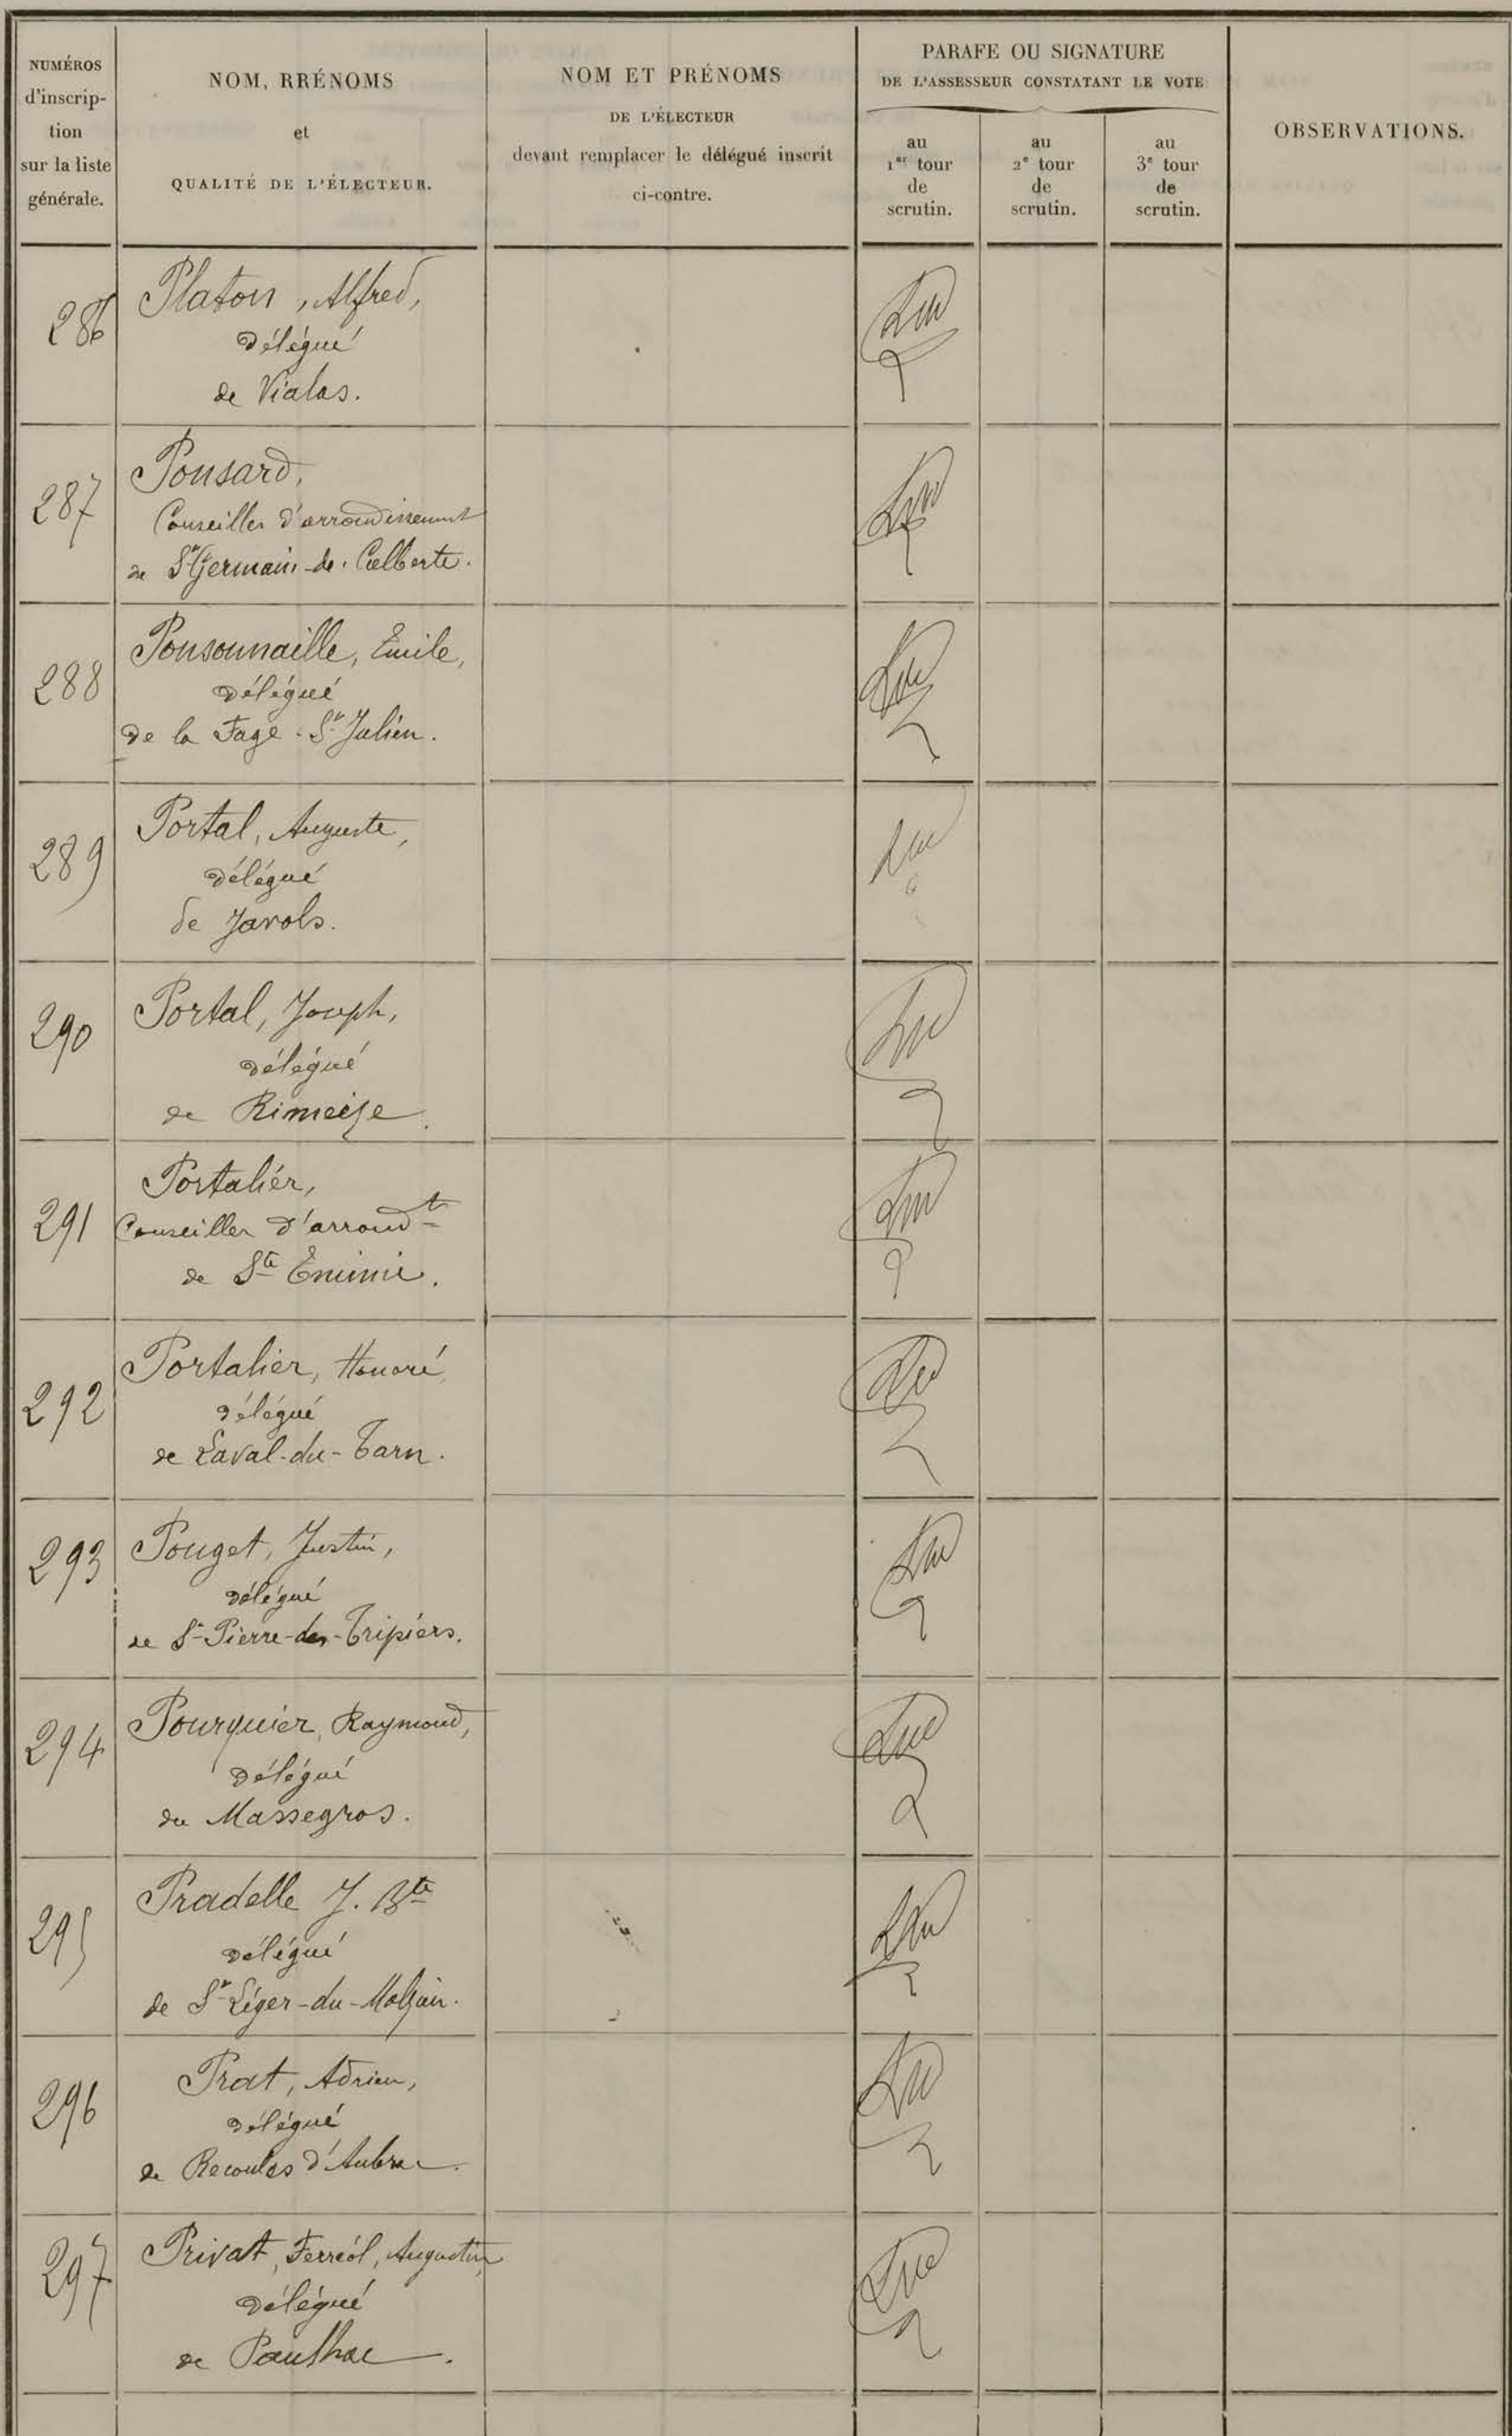 NUMÉROS
d'inscrip-
tion
sur la liste
générale.
NOM, RRÉNOMS
et
QUALITÉ DE L'ÉLECTEUR.
NOM ET PRÉNOMS
DE L'ÉLECTEUR
devant remplacer le délégué inscrit
ci-contre.
PARAFE OU SIGNATURE
DE L'ASSESSEUR CONSTATANT LE VOTE
au
1er tour
de
scrutin.
au
2e tour
de
scrutin.
au
3e tour
de
scrutin.
OBSERVATIONS.
286
Platon, Alfred,
délégué
de Vialas.
287
Ponsard,
Conseiller d'arrondissement
de St Germain-de-Calberte.
288
Ponsonnaille, Emile,
délégué
de la Fage-St Julien.
289
Portal, Auguste,
délégué
de Javols.
290
Portal, Joseph,
délégué
de Rimeize.
291
Portalier,
Conseiller d'arrondt
de Ste Enimie.
292
Portalier, Honoré,
délégué
de Laval-du-Tarn.
293
Pouget, Justin,
délégué
de St-Pierre-des-Tripiers.
294
Pourquier, Raymond,
délégué
du Massegros.
295
Pradelle J. Bte
délégué
de St Léger-du-Malzieu.
296
Prat, Adrien,
délégué
de Recoules d'Aubrac.
297
Privat, Ferréol, Augustin,
délégué
de Paulhac.